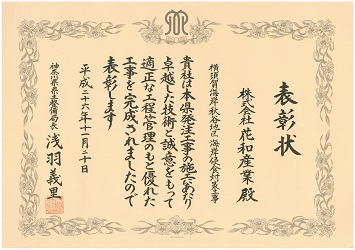 表彰状
株式会社 花和産業 殿
横須賀海岸 秋谷地区 海岸侵食対策工事
貴社は本県発注工事の施工にあたり
卓越した技術と誠意をもって
適正な工程管理のもと優れた
工事を完成されましたので
表彰します
平成二十六年十一月二十日
神奈川県県土整備局長 浅羽義里